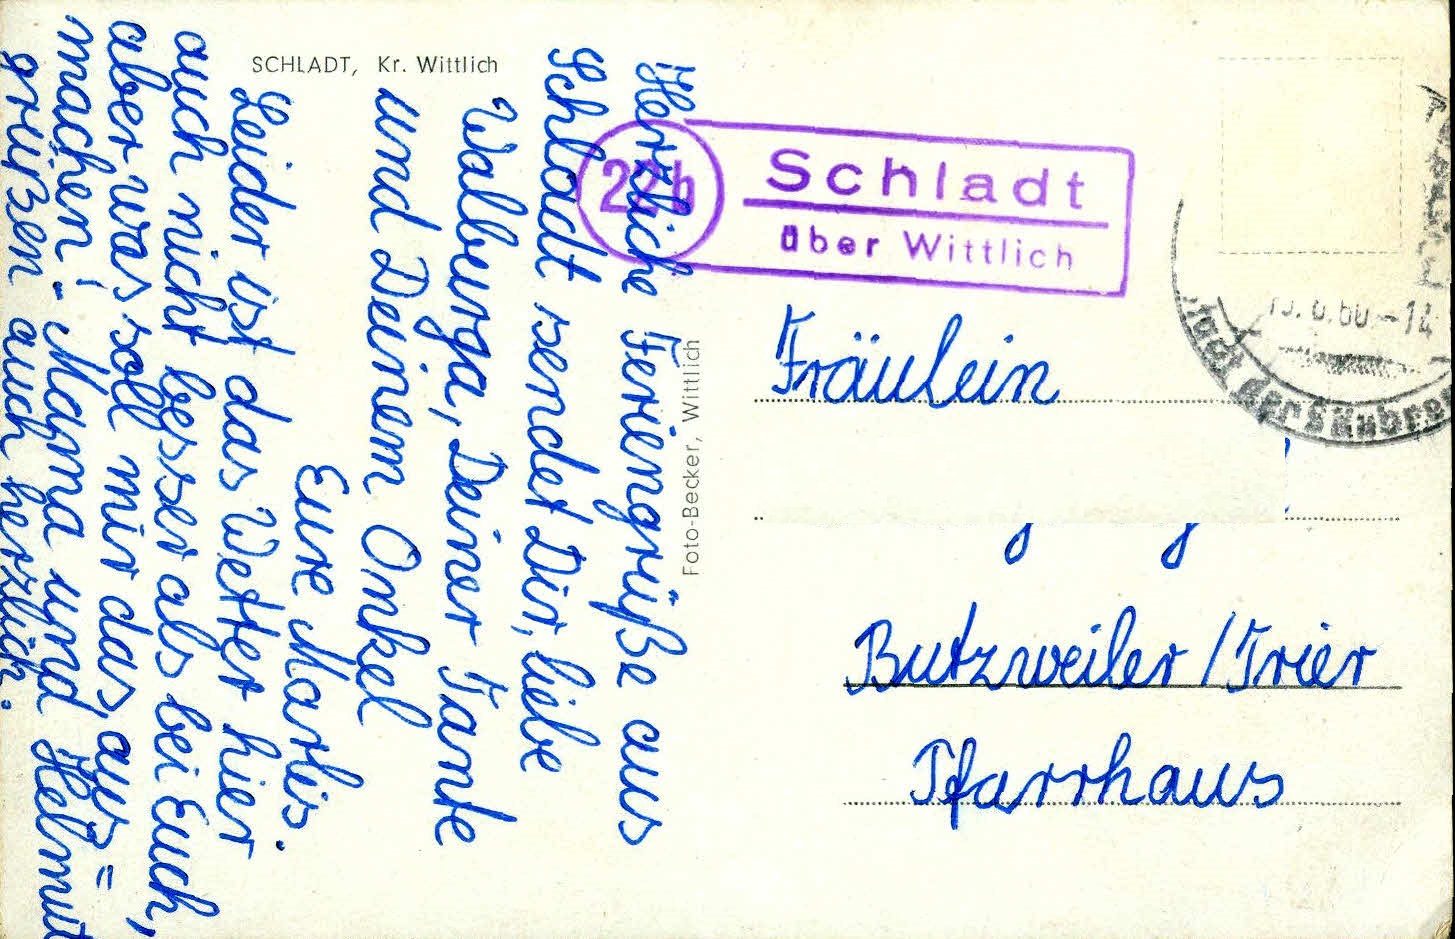 SCHLADT, Kr. Wittlich
Herzliche Feriengrüße aus
Schladt sendet Dir, liebe
Walburga, Deiner Tante
und Deinem Onkel
Eure Marlis.
Leider ist das Wetter hier
auch nicht besser als bei Euch,
aber was soll mir das aus=
machen! - Magna und Helmut
grüßen auch herzlich.
Foto-Becker, Wittlich
22b
Schladt
über Wittlich
13.6.60.-14
Stadt der Säubrenner
Fräulein
Butzweiler / Trier
Pfarrhaus